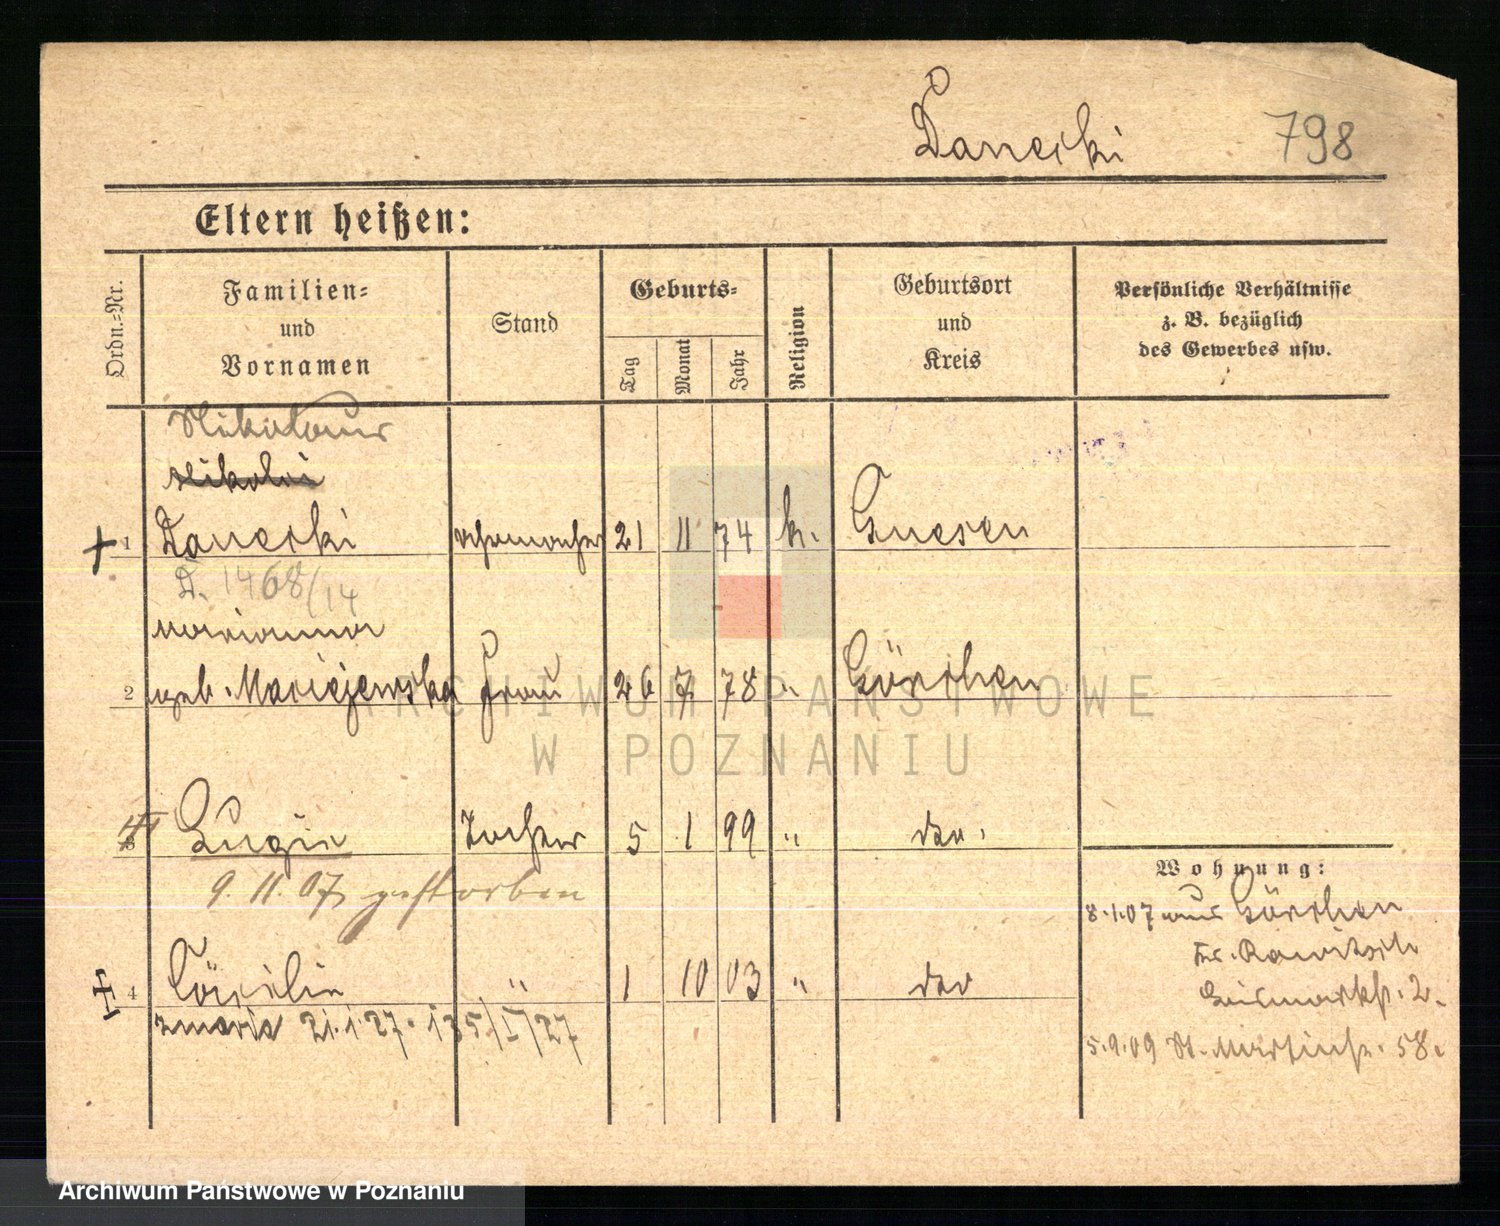 Danecki 798
Eltern heißen:
Ordn.=Nr.
Familien=
und
Vornamen
Stand
Geburts=
Tag
Monat
Jahr
Religion
Geburtsort
und
Kreis
Persönliche Verhältnisse
z. B. bezüglich
des Gewerbes usw.
Nikolaus
Nikolai
1 Danecki Uhrmacher 21 11 74 k. Gnesen
D. 1468/14
Marianna
2 geb. Maciejewska Frau 26 7 78 " Görchen
3 Luzie Tochter 5 1 99 " do.
9.11.07 gestorben
4 Cäcilie " 1 10 03 " do
zmarła 21.1.27. 135/I/27
Wohnung:
8.1.07 aus Görchen
Kr. Rawitsch
Bismarckst. 2.
5.9.09 St. Martinst. 58.
ARCHIWUM PAŃSTWOWE
W POZNANIU
Archiwum Państwowe w Poznaniu